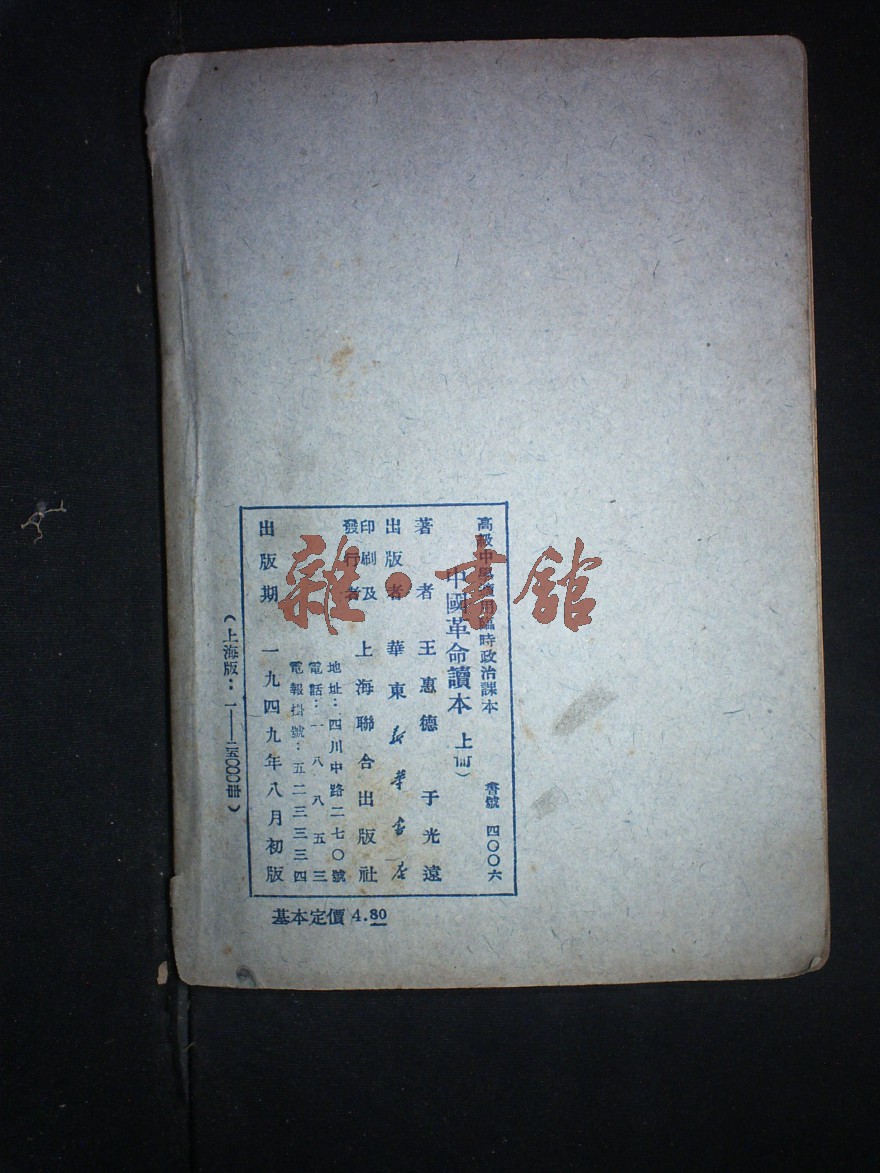 高級中學適用臨時政治課本 書號 四〇〇六
中國革命讀本 上冊)
著者 王惠德 于光遠
出版者 華東新華書店
印刷及
發行者 上海聯合出版社
地址:四川中路二七〇號
電話:一八八五三
電報掛號:五二三三三四
出版期 一九四九年八月初版
(上海版:一——二五〇〇〇冊)
基本定價 4.80
雜·書館